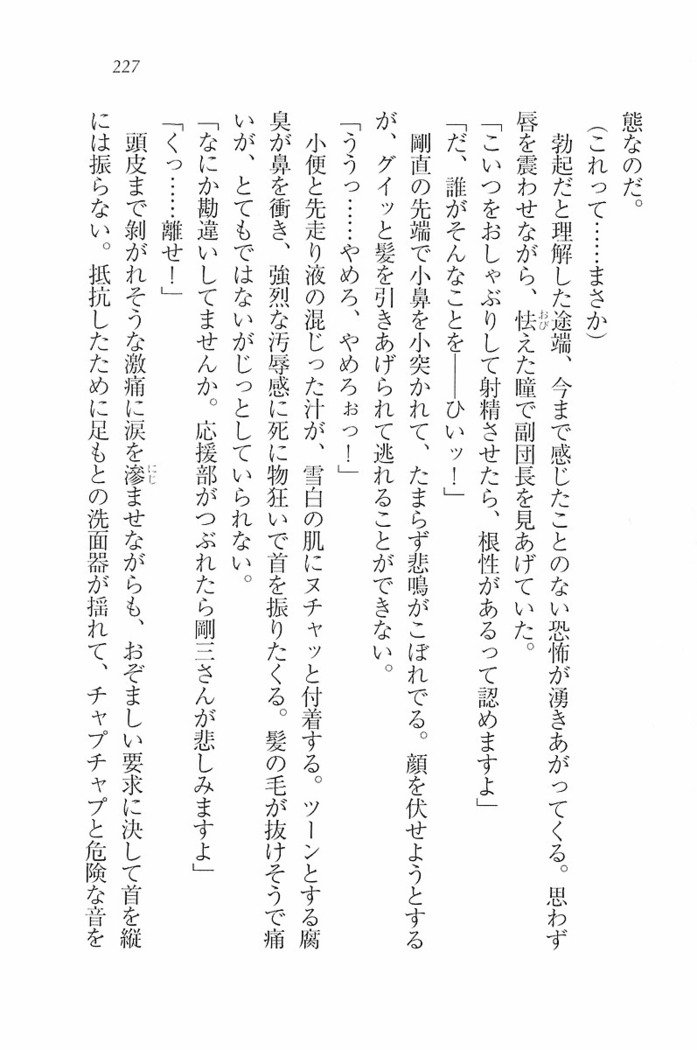 227
態なのだ。
(これって……まさか)
勃起だと理解した途端、今まで感じたことのない恐怖が湧きあがってくる。思わず
唇を震わせながら、怯えた瞳で副団長を見あげていた。
おび
「こいつをおしゃぶりして射精させたら、根性があるって認めますよ」
「だ、誰がそんなことを――ひいッ！」
剛直の先端で小鼻を小突かれて、たまらず悲鳴がこぼれでる。顔を伏せようとする
が、グイッと髪を引きあげられて逃れることができない。
「ううっ……やめろ、やめろぉっ！」
小便と先走り液の混じった汁が、雪白の肌にヌチャッと付着する。ツーンとする腐
臭が鼻を衝き、強烈な汚辱感に死に物狂いで首を振りたくる。髪の毛が抜けそうで痛
いが、とてもではないがじっとしていられない。
「なにか勘違いしてませんか。応援部がつぶれたら剛三さんが悲しみますよ」
「くっ……離せ！」
頭皮まで剝がれそうな激痛に涙を滲ませながらも、おぞましい要求に決して首を縦
にじ
には振らない。抵抗したために足もとの洗面器が揺れて、チャプチャプと危険な音を